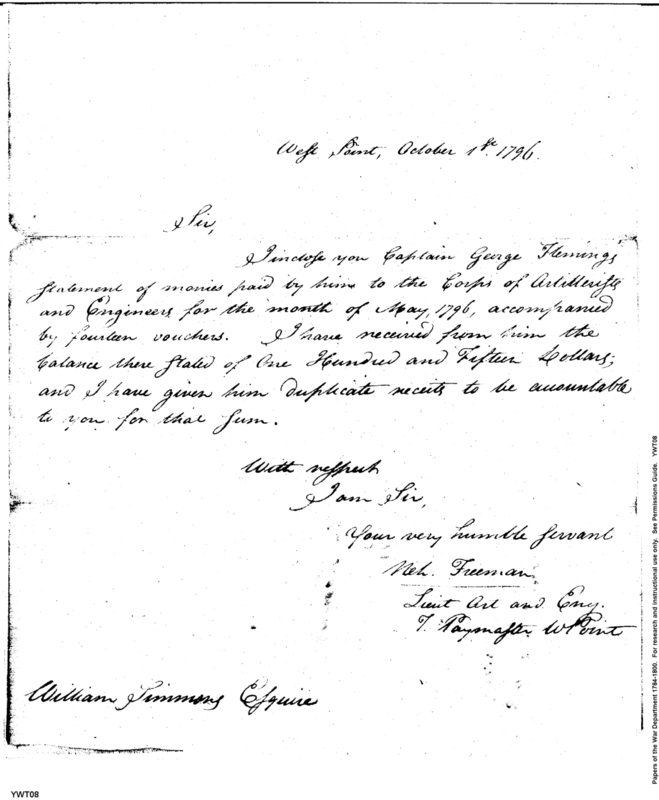 West Point, October 1st. 1796.
Sir,
I inclose you Captain George Flemings
statement of monies paid by him to the Corps of Artillerists
and Engineers for the month of May, 1796, accompanied
by fourteen vouchers. I have received from him the
balance there stated of One Hundred and Fifteen Dollars;
and I have given him duplicate receits to be accountable
to you for that sum.
With respect
I am Sir,
Your very humble servant
Neh. Freeman
Lieut Art and Eng.
T. Paymaster WPoint
William Simmons Esquire
YWT08
Papers of the War Department 1784-1800. For research and instructional use only. See Permissions Guide. YWT08